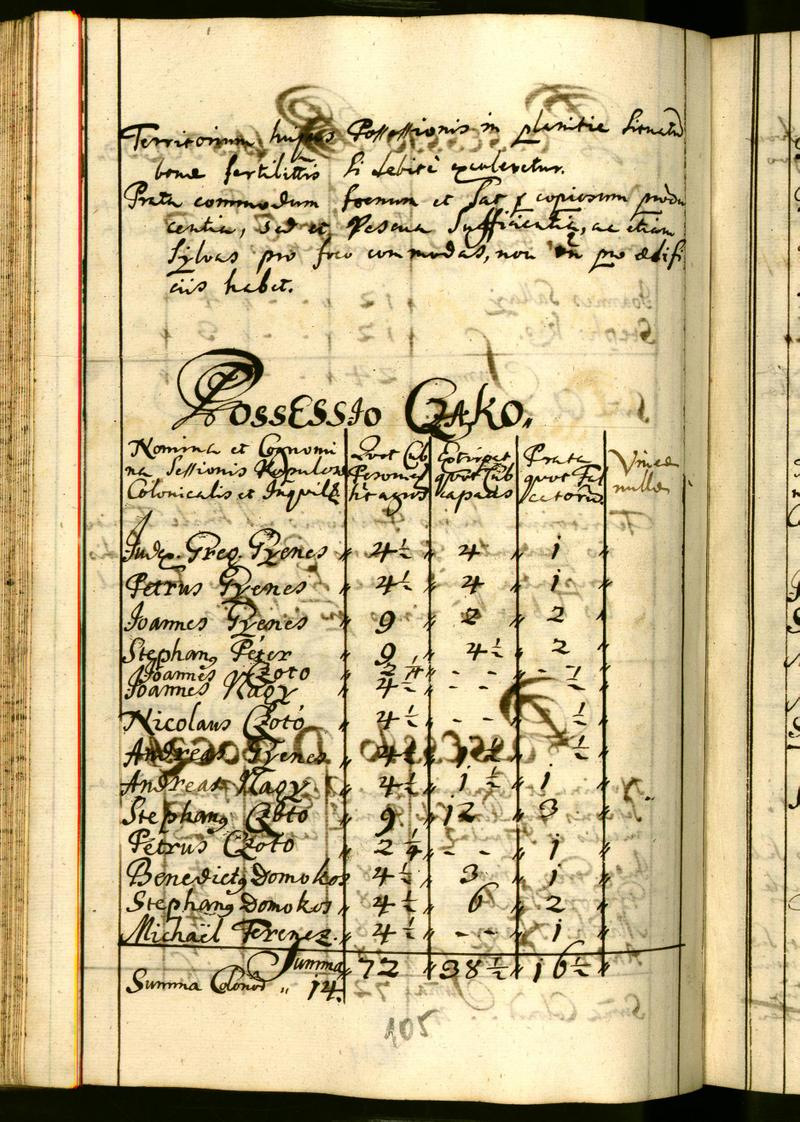 Territorium hujus Possessionis in planitie situatū
bonæ fertilitīs si debitè excoleretur.
Prata commodum foenum et sat copiosum produ
centia, sed et Pascua sufficientia, ac etiam
sylvas pro foco commodas, non pro ædifi
ciis habet.
Possessio Czako.
Nomina et Cognomi
na Sessionis Populor
Colonicalis et Inquil
Quot Cub
agros
Extirpat
quot Cub
capaces
Prata
quot Fal
cator
Vineæ
nullæ
Judex Greg. Gyenes „ 4½ „ 4 „ 1 „
Petrus Gyenes „ 4½ „ 4 „ 1 „
Joannes Gyenes „ 9 „ 2 „ 2 „
Stephanꝰ Péter „ 9 „ 4½ „ 2 „
Joannes Czoto „ 2¼ „ - - „ - ½ „
Joannes Nagy „ 4½ „ - - „
Nicolaus Czotó „ 4½ „ - - „ ½ „
Andreas Gyenes „ 4½ „ 1½ „ ½ „
Andreas Nagy „ 4½ „ 1½ „ 1 „
Stephanꝰ Czoto „ 9 „ 12 „ 3 „
Petrus Czoto „ 2¼ „ - - „ 1 „
Benedictꝰ Domokos „ 4½ „ 3 „ 1 „
Stephanꝰ Domokos „ 4½ „ 6 „ 2 „
Michaël Ferencz „ 4½ „ - - „ 1 „
Summa „ 72 „ 38½ „ 16½ „
Summa Colonor „ 14.
105